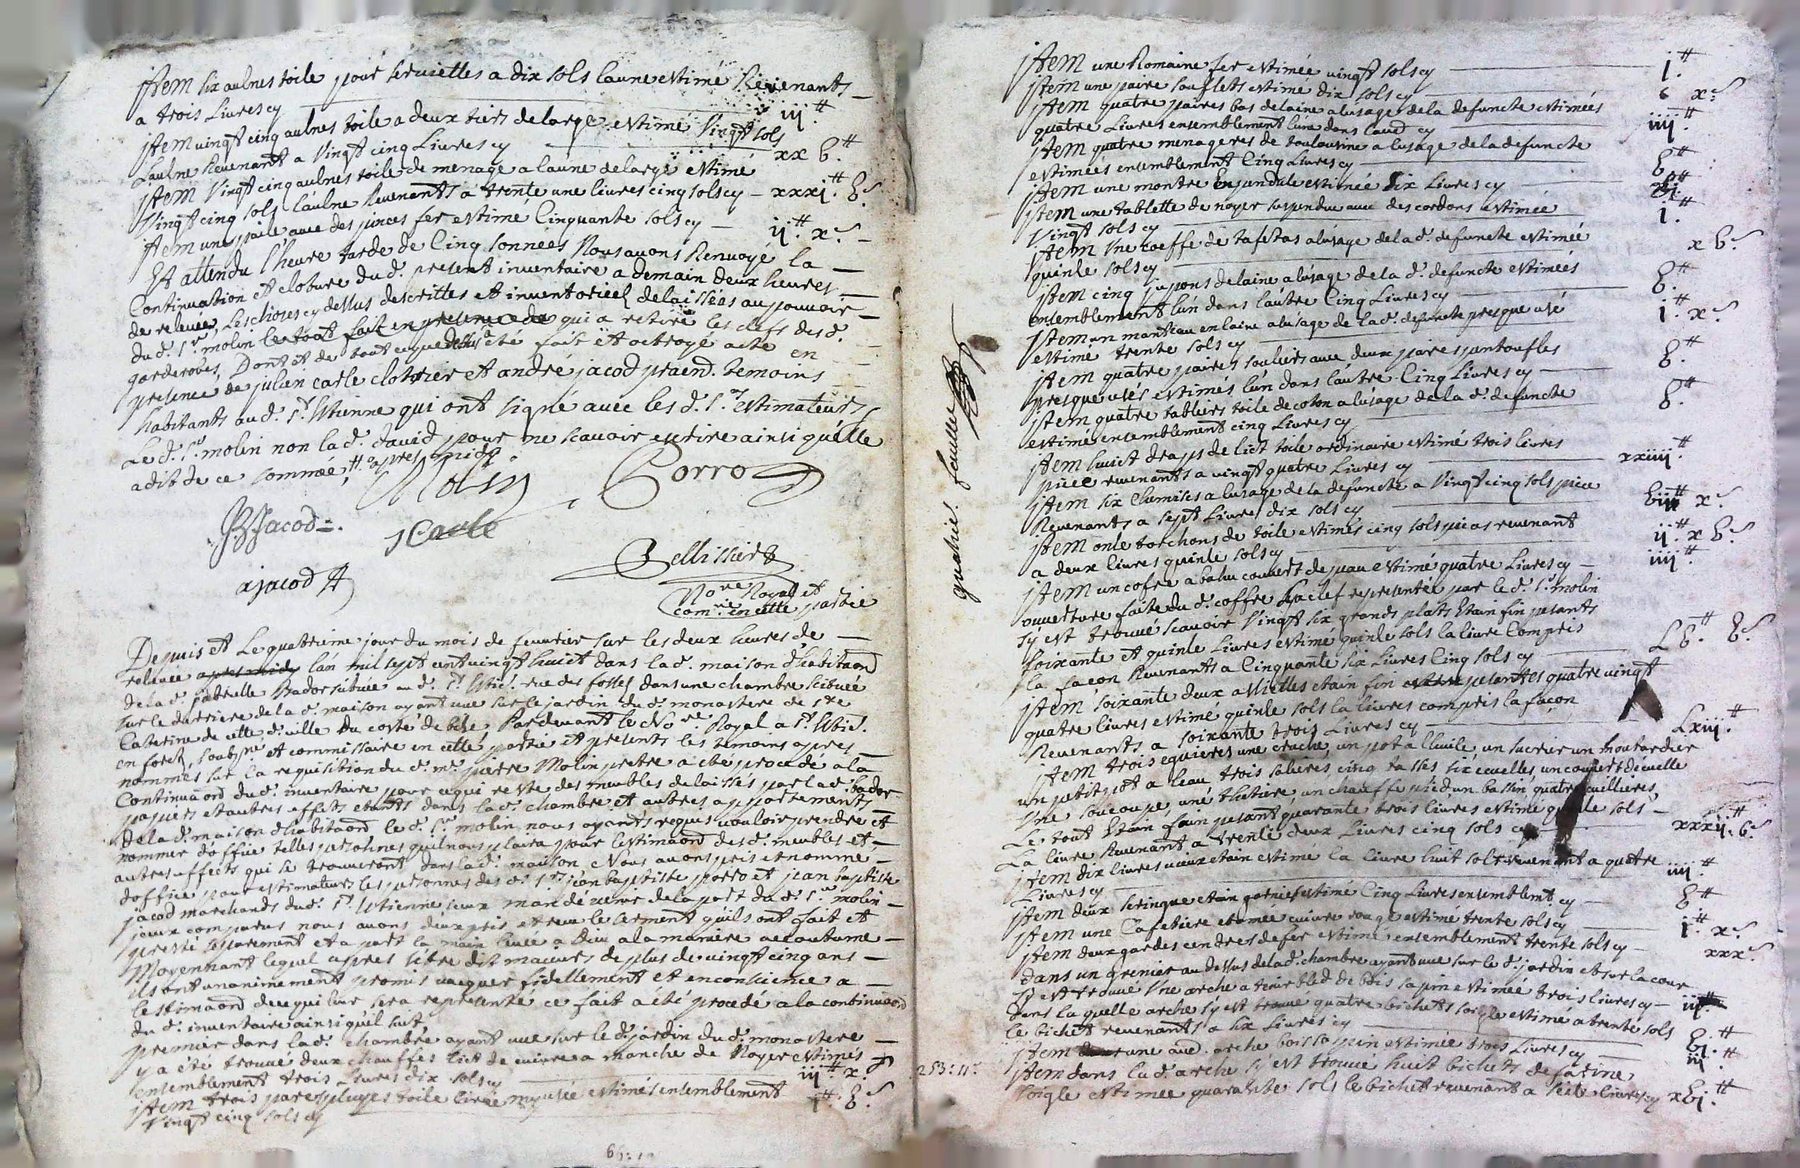 jtem six aulnes toile pour serviettes a dix sols laune estimé Revenants
a trois Livres cy iij.tt
jtem vingt cinq aulnes toile a deux tiers de large estimé Vingt sols
Laulne Revenant a Vingt cinq Livres cy xx b.tt
jtem Vingt cinq aulnes toile de menage a laune de large estimé
Vingt cinq sols laulne Revenants a trente une livres cinq sols cy xxxi.tt b.s
jtem une paile avec des pinces fer estimé Cinquante sols cy ij.tt x.s
Et attendu l'heure tarde de Cinq sonnées Nous avons Renvoyé la
Continuation et cloture du d. present inventaire a demain deux heures
de relevée, Les choses cy dessus descrittes et inventoriées delaissées au pouvoir
du d. Sr. molin le tout fait en presence de qui a retiré les clefs des d.
garderobes, Dont et de tout ce que dessus été fait et octroyé acte en
presence de julien carle clotrier et andré jacod praend. temoins
habitants au d. St. Etienne qui ont signé avec les d. Srs. estimateurs
Le d. Sr. molin non la d. david pour ne scavoir escrire ainsi qu'elle
a dit de ce sommée
Molin
Porro
JBJacod
J Carle
Bellissier
ajacod
Nore. Royal et
comre. en cette partie
Depuis et Le quatrieme jour du mois de fevvrier sur les deux heures de
relevée apres midy lan mil sept cent vingt huict dans la d. maison d'habitaon
de la d. Bador scituée au d. St. Etie. rue des fossés dans une chambre scituée
sur le derriere de la d. maison ayant vue sur le jardin du d. monastere de Ste
Caterine de cette d. ville du costé de bize, Pardevant le Nore Royal a St. Etie.
en forest, soubsne. et commissaire en cette partie et presents les temoins apres
nommés sur la requisition du d. mre. pierre Molin pretre a été procedé a la
Continuaon du d. inventaire pour ce qui reste des meubles delaissés par la d. bador
papiers et autres effets etants dans la d. chambre et autres appartements
de la d. maison d'habitaon le d. Sr. molin nous ayants requis vouloir prendre et
nommer d'office telles personnes quil nous plaira pour l'estimaon des d. meubles et
autres effects qui se trouveront dans la d. maison Nous avons pris et nommé
d'office pour estimateurs les personnes des d. Srs. jean baptiste porro et jean baptiste
jacod marchands du d. St. Etienne iceux mandé venir de la part du d. Sr. molin
iceux comparus nous avons d'eux pris et receu le serment quils ont fait et
presté separement et a part la main levée a Dieu a la maniere accoutumé
Moyennant lequel apres s'etre dit maieurs de plus de vingt cinq ans
ils ont unanimement promis vacquer fidellement et en conscience a
lestimaon de ce qui leur sera representé ce fait a été procedé a la continuaon
du d. inventaire ainsi quil suit
premier dans la d. chambre ayant vue sur le d. jardin du d. monastere
y a été trouvé deux chauffes lict de cuivre a manche de Noyer estimés
ensemblement trois Livres dix sols cy iij.tt x.s
jtem trois paires toile estimés ensemblement
Vingt cinq sols cy i.tt b.s
quatries. feuille
253:11:
jtem une Romaine fer estimée vingt sols cy j.tt
jtem une paire soufflets estimé dix sols cy x.s
jtem quatre paires bas de laine a lusage de la defuncte estimées
quatre Livres ensemblement lune dans lautre cy iiij.tt
jtem quatre menageres de toulousine a lusage de la defuncte
estimées ensemblement Cinq Livres cy b.tt
jtem une montre En pandule estimée Six Livres cy bi.tt
jtem une tablette de noyer suspendue avec des cordons estimée
Vingt sols cy i.tt
jtem Une coeffe de tafetas a lusage de la d. defuncte estimée
quinse sols cy x b.s
jtem cinq jupons de laine a lusage de la d. defuncte estimées
ensemblement lun dans lautre Cinq Livres cy b.tt
jtem un manteau en laine a lusage de la d. defuncte presque usé
estimé trente sols cy i.tt x.s
jtem quatre paires souliers avec deux paires pantoufles
presque usés estimés lun dans lautre Cinq Livres cy b.tt
jtem quatre tabliers toile de coton a lusage de la d. defuncte
estimés ensemblement cinq Livres cy b.tt
jtem huict draps de lict toile ordinaire estimé trois livres
piece revenants a vingt quatre Livres cy xxiiij.tt
jtem six Chemises a lusage de la defuncte a Vingt cinq sols piece
Revenants a sept Livres dix sols cy bij.tt x.s
jtem onse torchons de toile estimés cinq sols pieces revenant
a deux livres quinse sols cy ij.tt x b.s
jtem un cofre a bahu couvert de peau estimé quatre Livres cy iiij.tt
ouverture faite du d. coffre sa clef representée par le d. Sr. molin
sy est trouvé scavoir Vingt six grands plats Etain fin pesants
soixante et quinse Livres estimé quinse sols la livre Compris
la façon Revenants a Cinquante six Livres Cinq sols cy Lbi.tt b.s
jtem soixante deux assiettes etain fin pesantes quatre vingt
quatre livres estimé quinse sols la livre compris la façon
Revenants a soixante trois Livres cy Lxiij.tt
jtem trois eguieres une cruche, un pot a l'huile un sucrier un moutardier
un petit pot a leau trois salieres cinq tasses six ecuelles, un couvert d'ecuelle
Une soucoupe, une thetiere un chauffe pied un bassin quatre cuillieres,
Le tout Etain fain pesant quarante trois livres estimé quinse sols
La livre Revenant a trente deux Livres cinq sols cy xxxij.tt b.s
jtem dix livres vieux etain estimé la livre huit sols revenant a quatre
Livres cy iiij.tt
jtem deux seringue etain garnies estimé Cinq Livres ensemblemt. cy b.tt
jtem une Cafetiere etamée cuivre rouge estimé trente sols cy i.tt x.s
jtem deux gardes cendres de fer estimé ensemblement trente sols cy xxx.s
dans un grenier au dessus de la d. chambre ayant vue sur le d. jardin et sur la cour
sy est trouvé Une arche a tenir bled de bois sapin estimée trois livres cy iij.tt
dans la quelle arche sy est trouvé quatre bichets soigle estimé a trente sols
le bichet revenants a six Livres cy bi.tt
jtem une aud. arche bois sapin estimée trois Livres cy iij.tt
jtem dans la d. arche s'y est trouvé huit bichets de farine
soigle estimée quarante sols le bichet revenant a seise livres cy xbi.tt